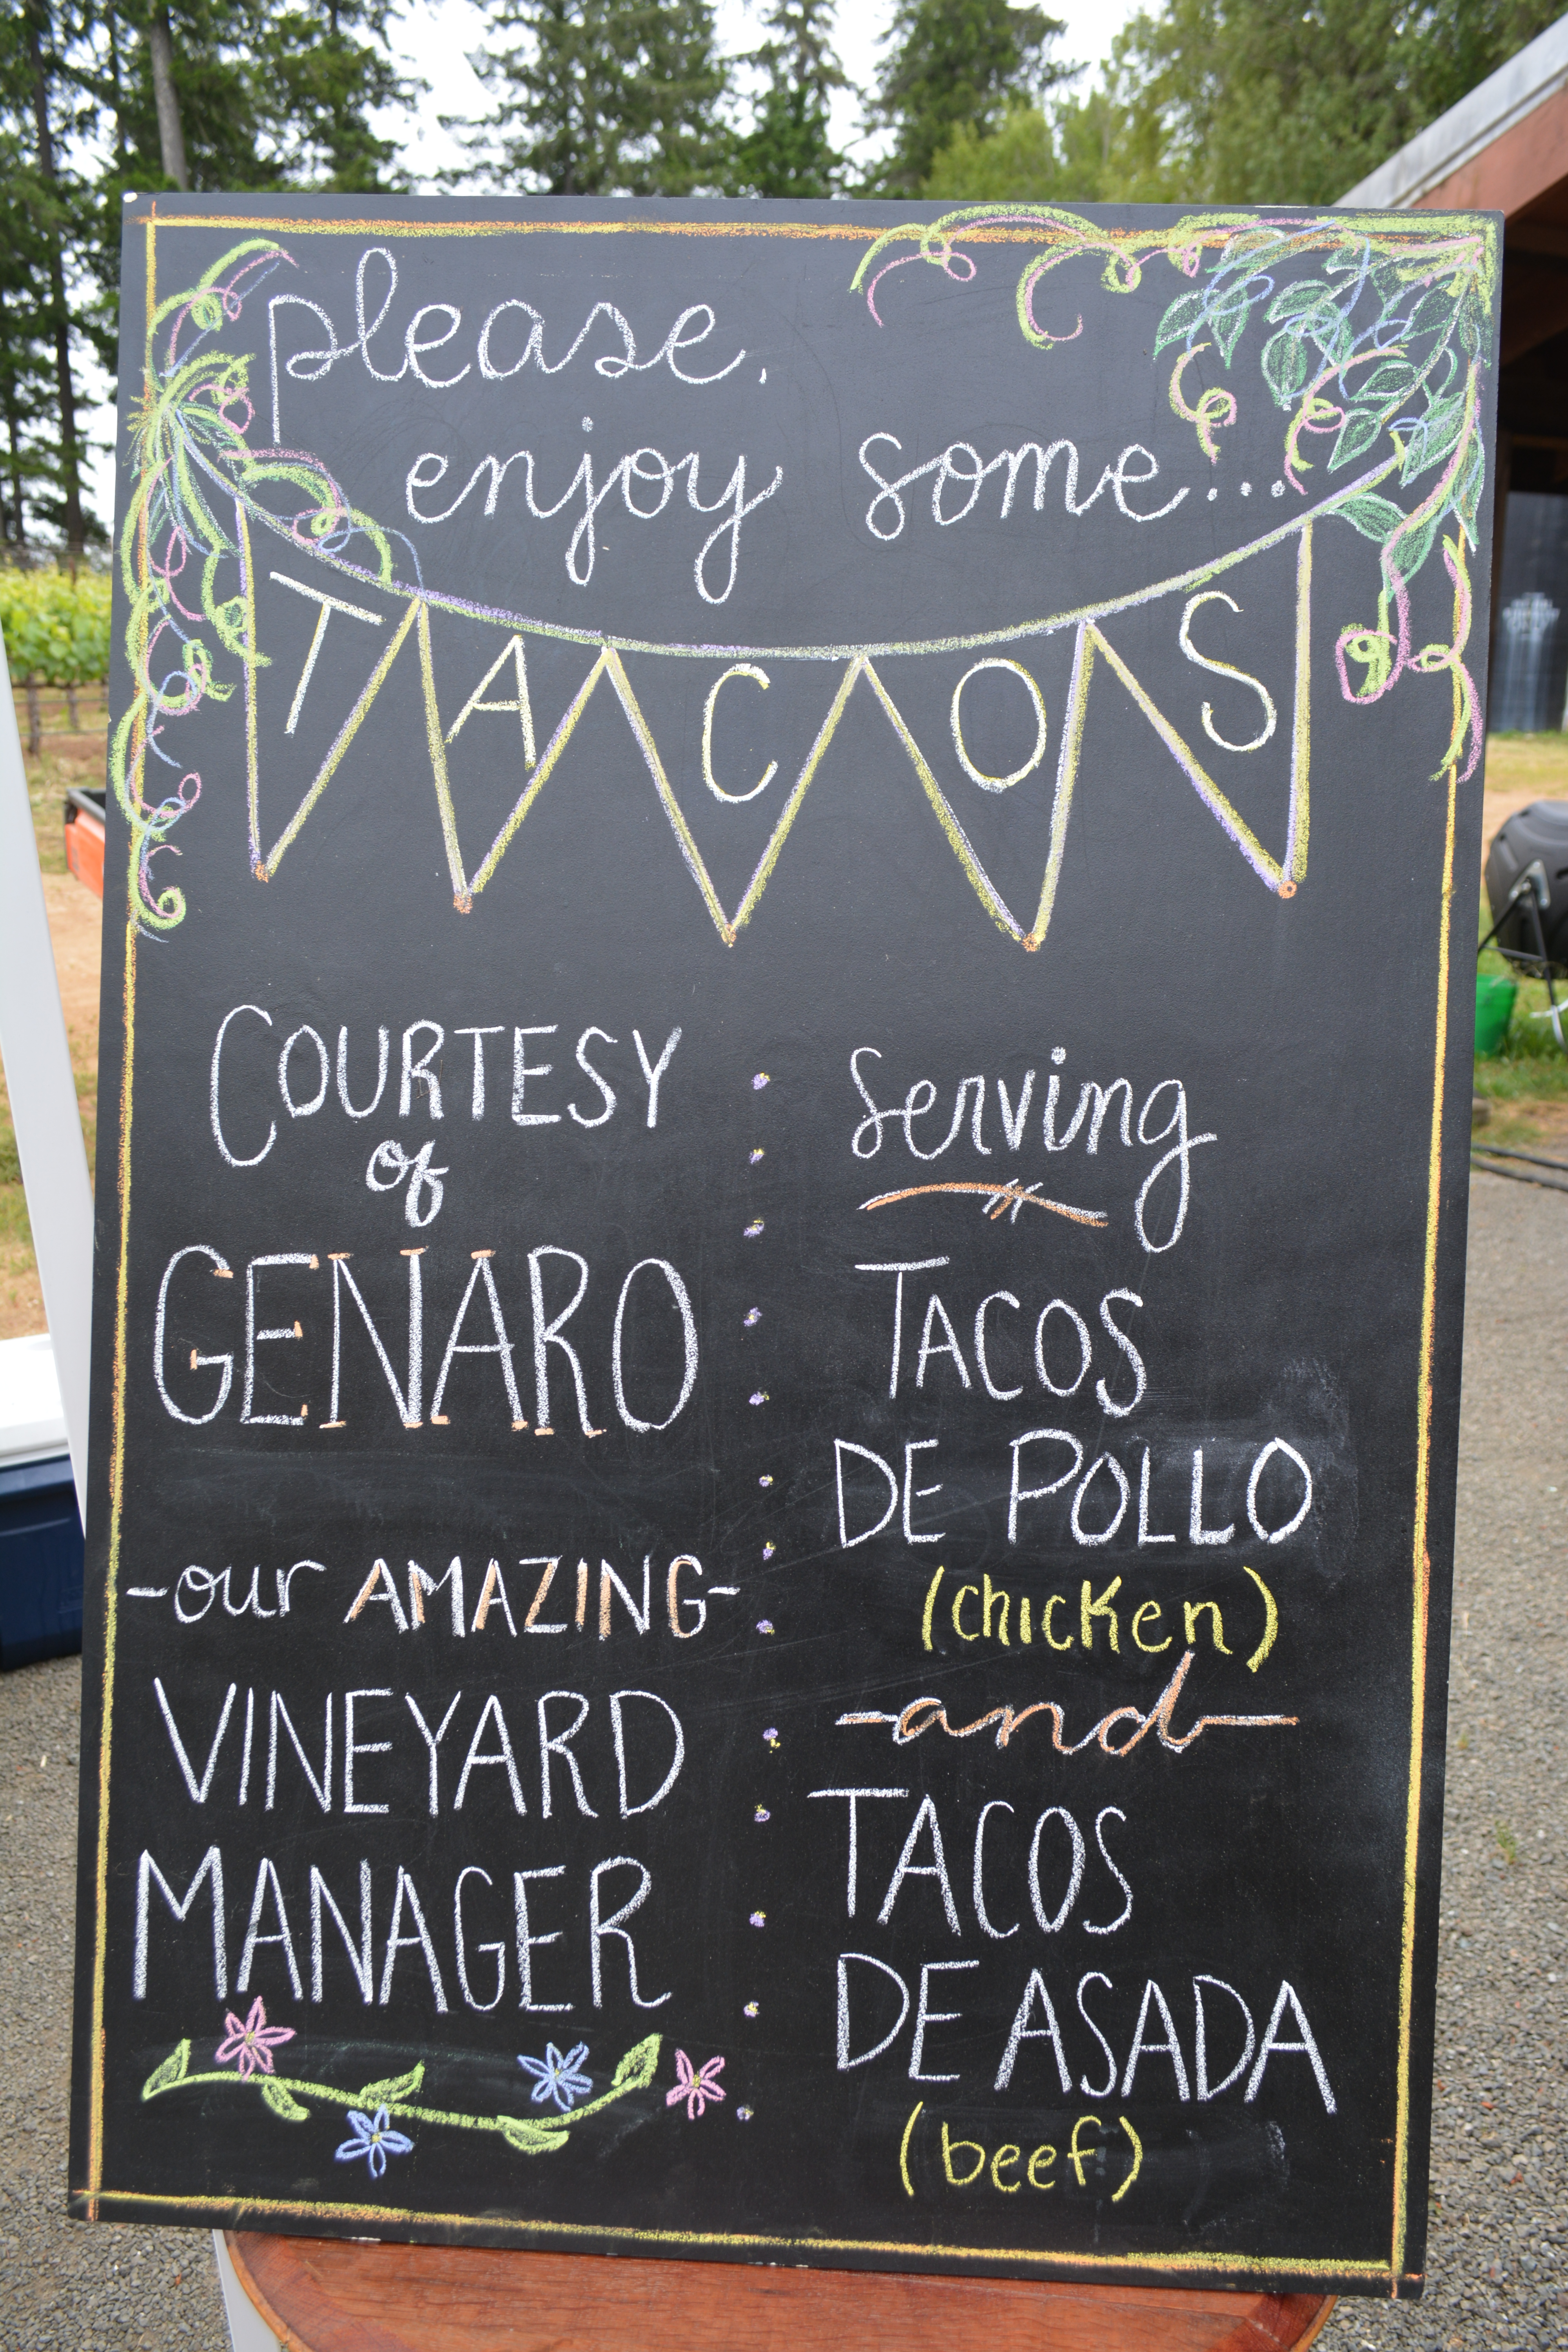 please,
enjoy some...
TACOS
COURTESY
of
GENARO
-our AMAZING-
VINEYARD
MANAGER
Serving
TACOS
DE POLLO
(chicken)
-and-
TACOS
DE ASADA
(beef)